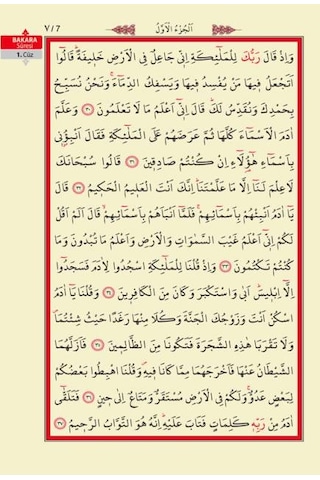 ٧/7
اَلْجُزْءُ الْاَوَّلُ
BAKARA
Sûresi
1. Cüz
وَاِذْ قَالَ رَبُّكَ لِلْمَلٰٓئِكَةِ اِنّ۪ي جَاعِلٌ فِي الْاَرْضِ خَل۪يفَةًۜ قَالُٓوا
اَتَجْعَلُ ف۪يهَا مَنْ يُفْسِدُ ف۪يهَا وَيَسْفِكُ الدِّمَٓاءَۚ وَنَحْنُ نُسَبِّحُ
بِحَمْدِكَ وَنُقَدِّسُ لَكَۜ قَالَ اِنّ۪ٓي اَعْلَمُ مَا لَا تَعْلَمُونَ ﴿٣٠﴾ وَعَلَّمَ
اٰدَمَ الْاَسْمَٓاءَ كُلَّهَا ثُمَّ عَرَضَهُمْ عَلَى الْمَلٰٓئِكَةِ فَقَالَ اَنْبِؤُ۫ن۪ي
بِاَسْمَٓاءِ هٰٓؤُ۬لَٓاءِ اِنْ كُنْتُمْ صَادِق۪ينَ ﴿٣١﴾ قَالُوا سُبْحَانَكَ
لَا عِلْمَ لَنَٓا اِلَّا مَا عَلَّمْتَنَاۜ اِنَّكَ اَنْتَ الْعَل۪يمُ الْحَك۪يمُ ﴿٣٢﴾ قَالَ
يَٓا اٰدَمُ اَنْبِئْهُمْ بِاَسْمَٓائِهِمْۚ فَلَمَّٓا اَنْبَاَهُمْ بِاَسْمَٓائِهِمْ قَالَ اَلَمْ اَقُلْ
لَكُمْ اِنّ۪ٓي اَعْلَمُ غَيْبَ السَّمٰوَاتِ وَالْاَرْضِ وَاَعْلَمُ مَا تُبْدُونَ وَمَا
كُنْتُمْ تَكْتُمُونَ ﴿٣٣﴾ وَاِذْ قُلْنَا لِلْمَلٰٓئِكَةِ اسْجُدُوا لِاٰدَمَ فَسَجَدُٓوا
اِلَّٓا اِبْل۪يسَۜ اَبٰى وَاسْتَكْبَرَ وَكَانَ مِنَ الْكَافِر۪ينَ ﴿٣٤﴾ وَقُلْنَا يَٓا اٰدَمُ
اسْكُنْ اَنْتَ وَزَوْجُكَ الْجَنَّةَ وَكُلَا مِنْهَا رَغَدًا حَيْثُ شِئْتُمَاۖ
وَلَا تَقْرَبَا هٰذِهِ الشَّجَرَةَ فَتَكُونَا مِنَ الظَّالِم۪ينَ ﴿٣٥﴾ فَاَزَلَّهُمَا
الشَّيْطَانُ عَنْهَا فَاَخْرَجَهُمَا مِمَّا كَانَا ف۪يهِۖ وَقُلْنَا اهْبِطُوا بَعْضُكُمْ
لِبَعْضٍ عَدُوٌّۚ وَلَكُمْ فِي الْاَرْضِ مُسْتَقَرٌّ وَمَتَاعٌ اِلٰى ح۪ينٍ ﴿٣٦﴾ فَتَلَقّٰٓى
اٰدَمُ مِنْ رَبِّه۪ كَلِمَاتٍ فَتَابَ عَلَيْهِۜ اِنَّهُ هُوَ التَّوَّابُ الرَّح۪يمُ ﴿٣٧﴾